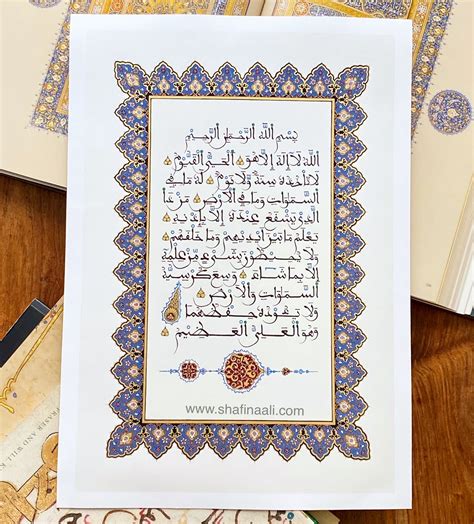 بِسْمِ اللَّهِ الرَّحْمَٰنِ الرَّحِيمِ
اللَّهُ لَا إِلَٰهَ إِلَّا هُوَ الْحَيُّ الْقَيُّومُ
لَا تَأْخُذُهُ سِنَةٌ وَلَا نَوْمٌ لَهُ مَا فِي
السَّمَاوَاتِ وَمَا فِي الْأَرْضِ مَنْ ذَا
الَّذِي يَشْفَعُ عِنْدَهُ إِلَّا بِإِذْنِهِ
يَعْلَمُ مَا بَيْنَ أَيْدِيهِمْ وَمَا خَلْفَهُمْ
وَلَا يُحِيطُونَ بِشَيْءٍ مِنْ عِلْمِهِ
إِلَّا بِمَا شَاءَ وَسِعَ كُرْسِيُّهُ
السَّمَاوَاتِ وَالْأَرْضَ
وَلَا يَئُودُهُ حِفْظُهُمَا
وَهُوَ الْعَلِيُّ الْعَظِيمُ
www.shafinaali.com
AND WILL